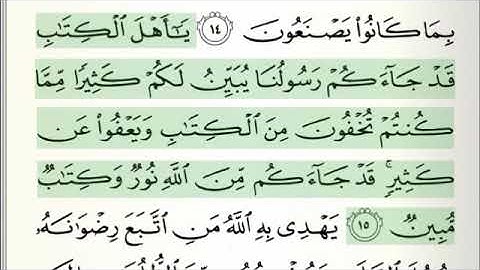 بِمَا كَانُوا۟ يَصْنَعُونَ ١٤ يَـٰٓأَهْلَ ٱلْكِتَـٰبِ
قَدْ جَآءَكُمْ رَسُولُنَا يُبَيِّنُ لَكُمْ كَثِيرًا مِّمَّا
كُنتُمْ تُخْفُونَ مِنَ ٱلْكِتَـٰبِ وَيَعْفُوا۟ عَن
كَثِيرٍ ۚ قَدْ جَآءَكُم مِّنَ ٱللَّهِ نُورٌ وَكِتَـٰبٌ
مُّبِينٌ ١٥ يَهْدِى بِهِ ٱللَّهُ مَنِ ٱتَّبَعَ رِضْوَٰنَهُۥ